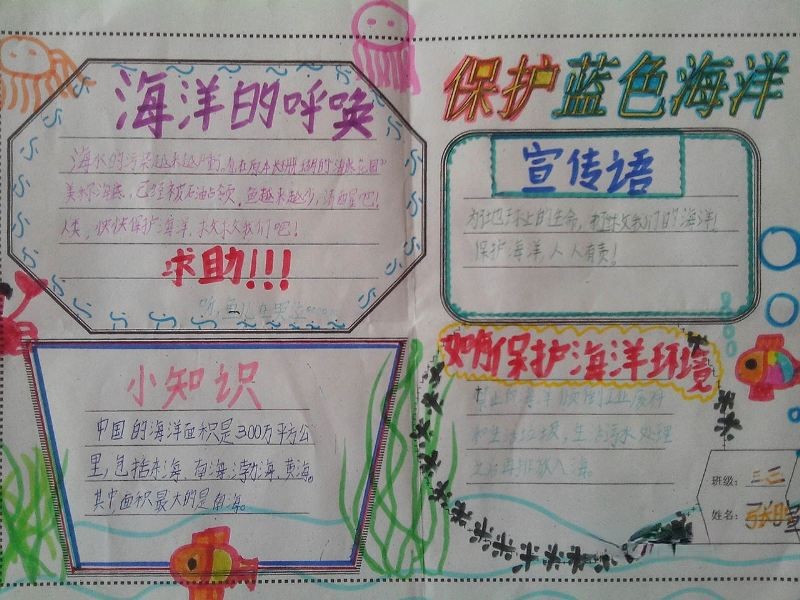 海洋的呼唤
海水的污染越来越严重,原本
美丽海底,已经被石油占领,鱼越来越少,清醒吧!
人类,快快保护海洋,救救我们吧!
求助!!!
听,
小知识
中国的海洋面积是300万平方公
里,包括东海、南海、渤海、黄海。
其中面积最大的是南海。
保护蓝色海洋
宣传语
为地球上的生命,拯救我们的海洋!
保护海洋,人人有责!
如何保护海洋环境
禁止向海洋倾倒工业废料
和生活垃圾,生活污水处理
之后再排放入海。
班级:三三
姓名:张